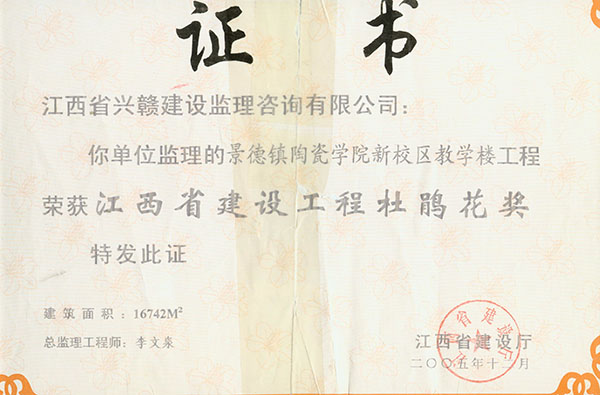 证书
江西省兴赣建设监理咨询有限公司：
你单位监理的景德镇陶瓷学院新校区教学楼工程
荣获江西省建设工程杜鹃花奖
特发此证
建筑面积：16742M²
总监理工程师：李文泉
江西省建设厅
江西省建设厅
二〇〇五年十二月